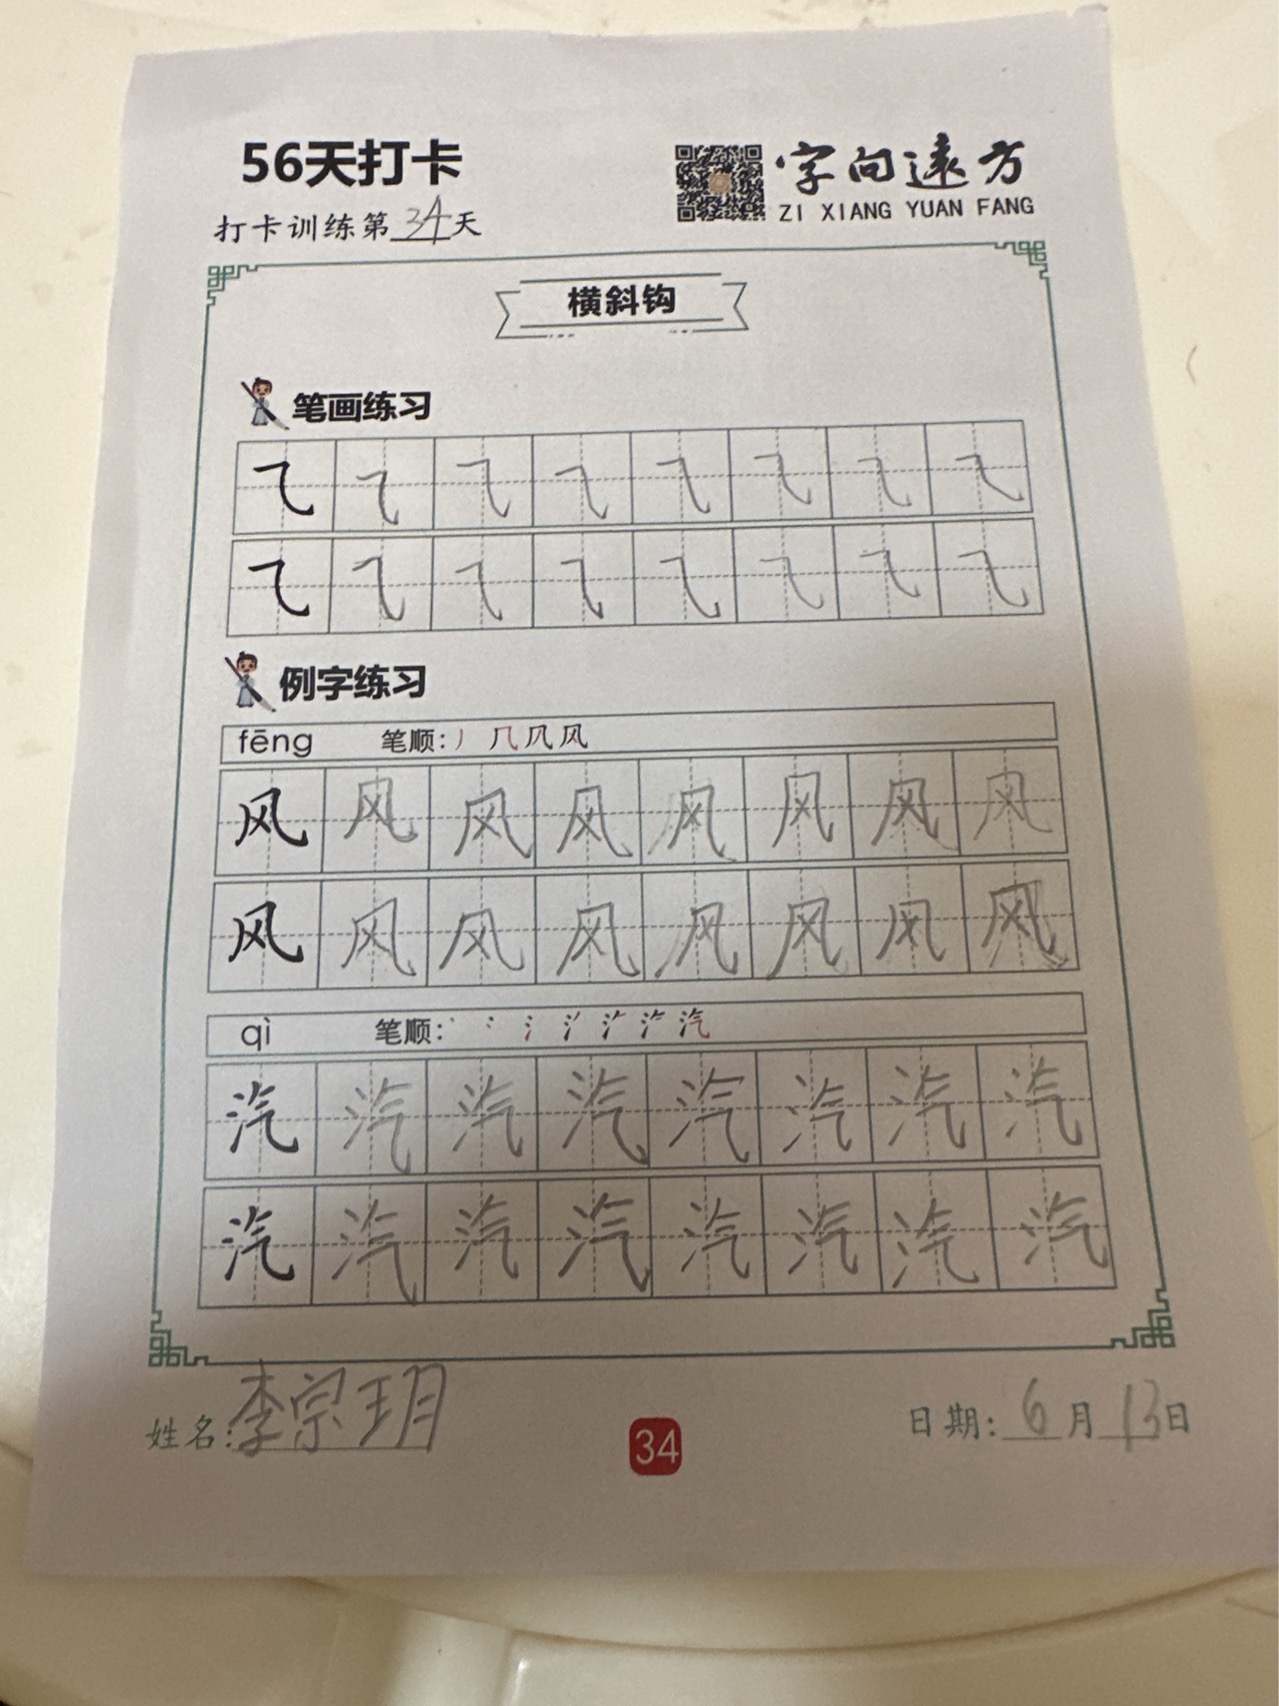 56天打卡
字向遠方
ZI XIANG YUAN FANG
打卡训练第34天
横斜钩
笔画练习
⺄ ⺄ ⺄ ⺄ ⺄ ⺄ ⺄ ⺄
⺄ ⺄ ⺄ ⺄ ⺄ ⺄ ⺄ ⺄
例字练习
fēng 笔顺: 丿 几 凤 风
风 风 风 风 风 风 风 风
风 风 风 风 风 风 风 风
qì 笔顺: 汽
汽 汽 汽 汽 汽 汽 汽 汽
汽 汽 汽 汽 汽 汽 汽 汽
姓名: 李宗玥
34
日期: 6月13日